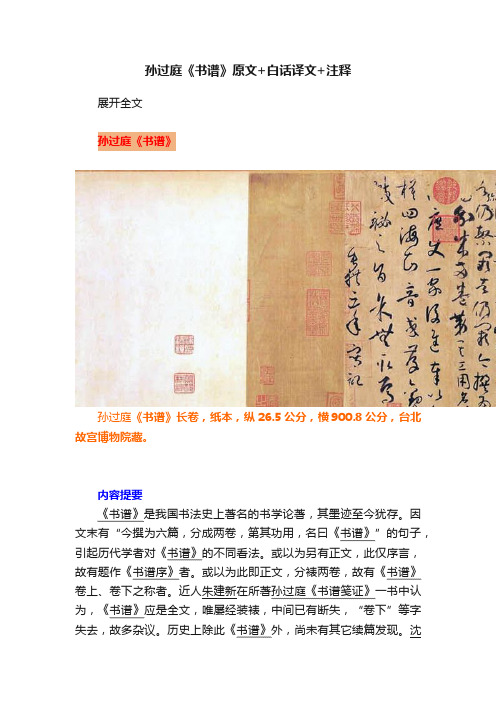 孙过庭《书谱》原文+白话译文+注释
展开全文
孙过庭《书谱》
今撰為
成兩卷第其工用名
庶使一家後進奉以
模四海知音或存觀
緘秘之旨余無取焉
垂拱三年寫記
孙过庭《书谱》长卷，纸本，纵26.5公分，横900.8公分，台北
故宫博物院藏。
内容提要
《书谱》是我国书法史上著名的书学论著，其墨迹至今犹存。因
文末有“今撰为六篇，分成两卷，第其功用，名曰《书谱》”的句子，
引起历代学者对《书谱》的不同看法。或以为另有正文，此仅序言，
故有题作《书谱序》者。或以为此即正文，分裱两卷，故有《书谱》
卷上、卷下之称者。近人朱建新在所著孙过庭《书谱笺证》一书中认
为，《书谱》应是全文，唯屡经装裱，中间已有断失，“卷下”等字
失去，故多杂议。历史上除此《书谱》外，尚未有其它续篇发现。沈